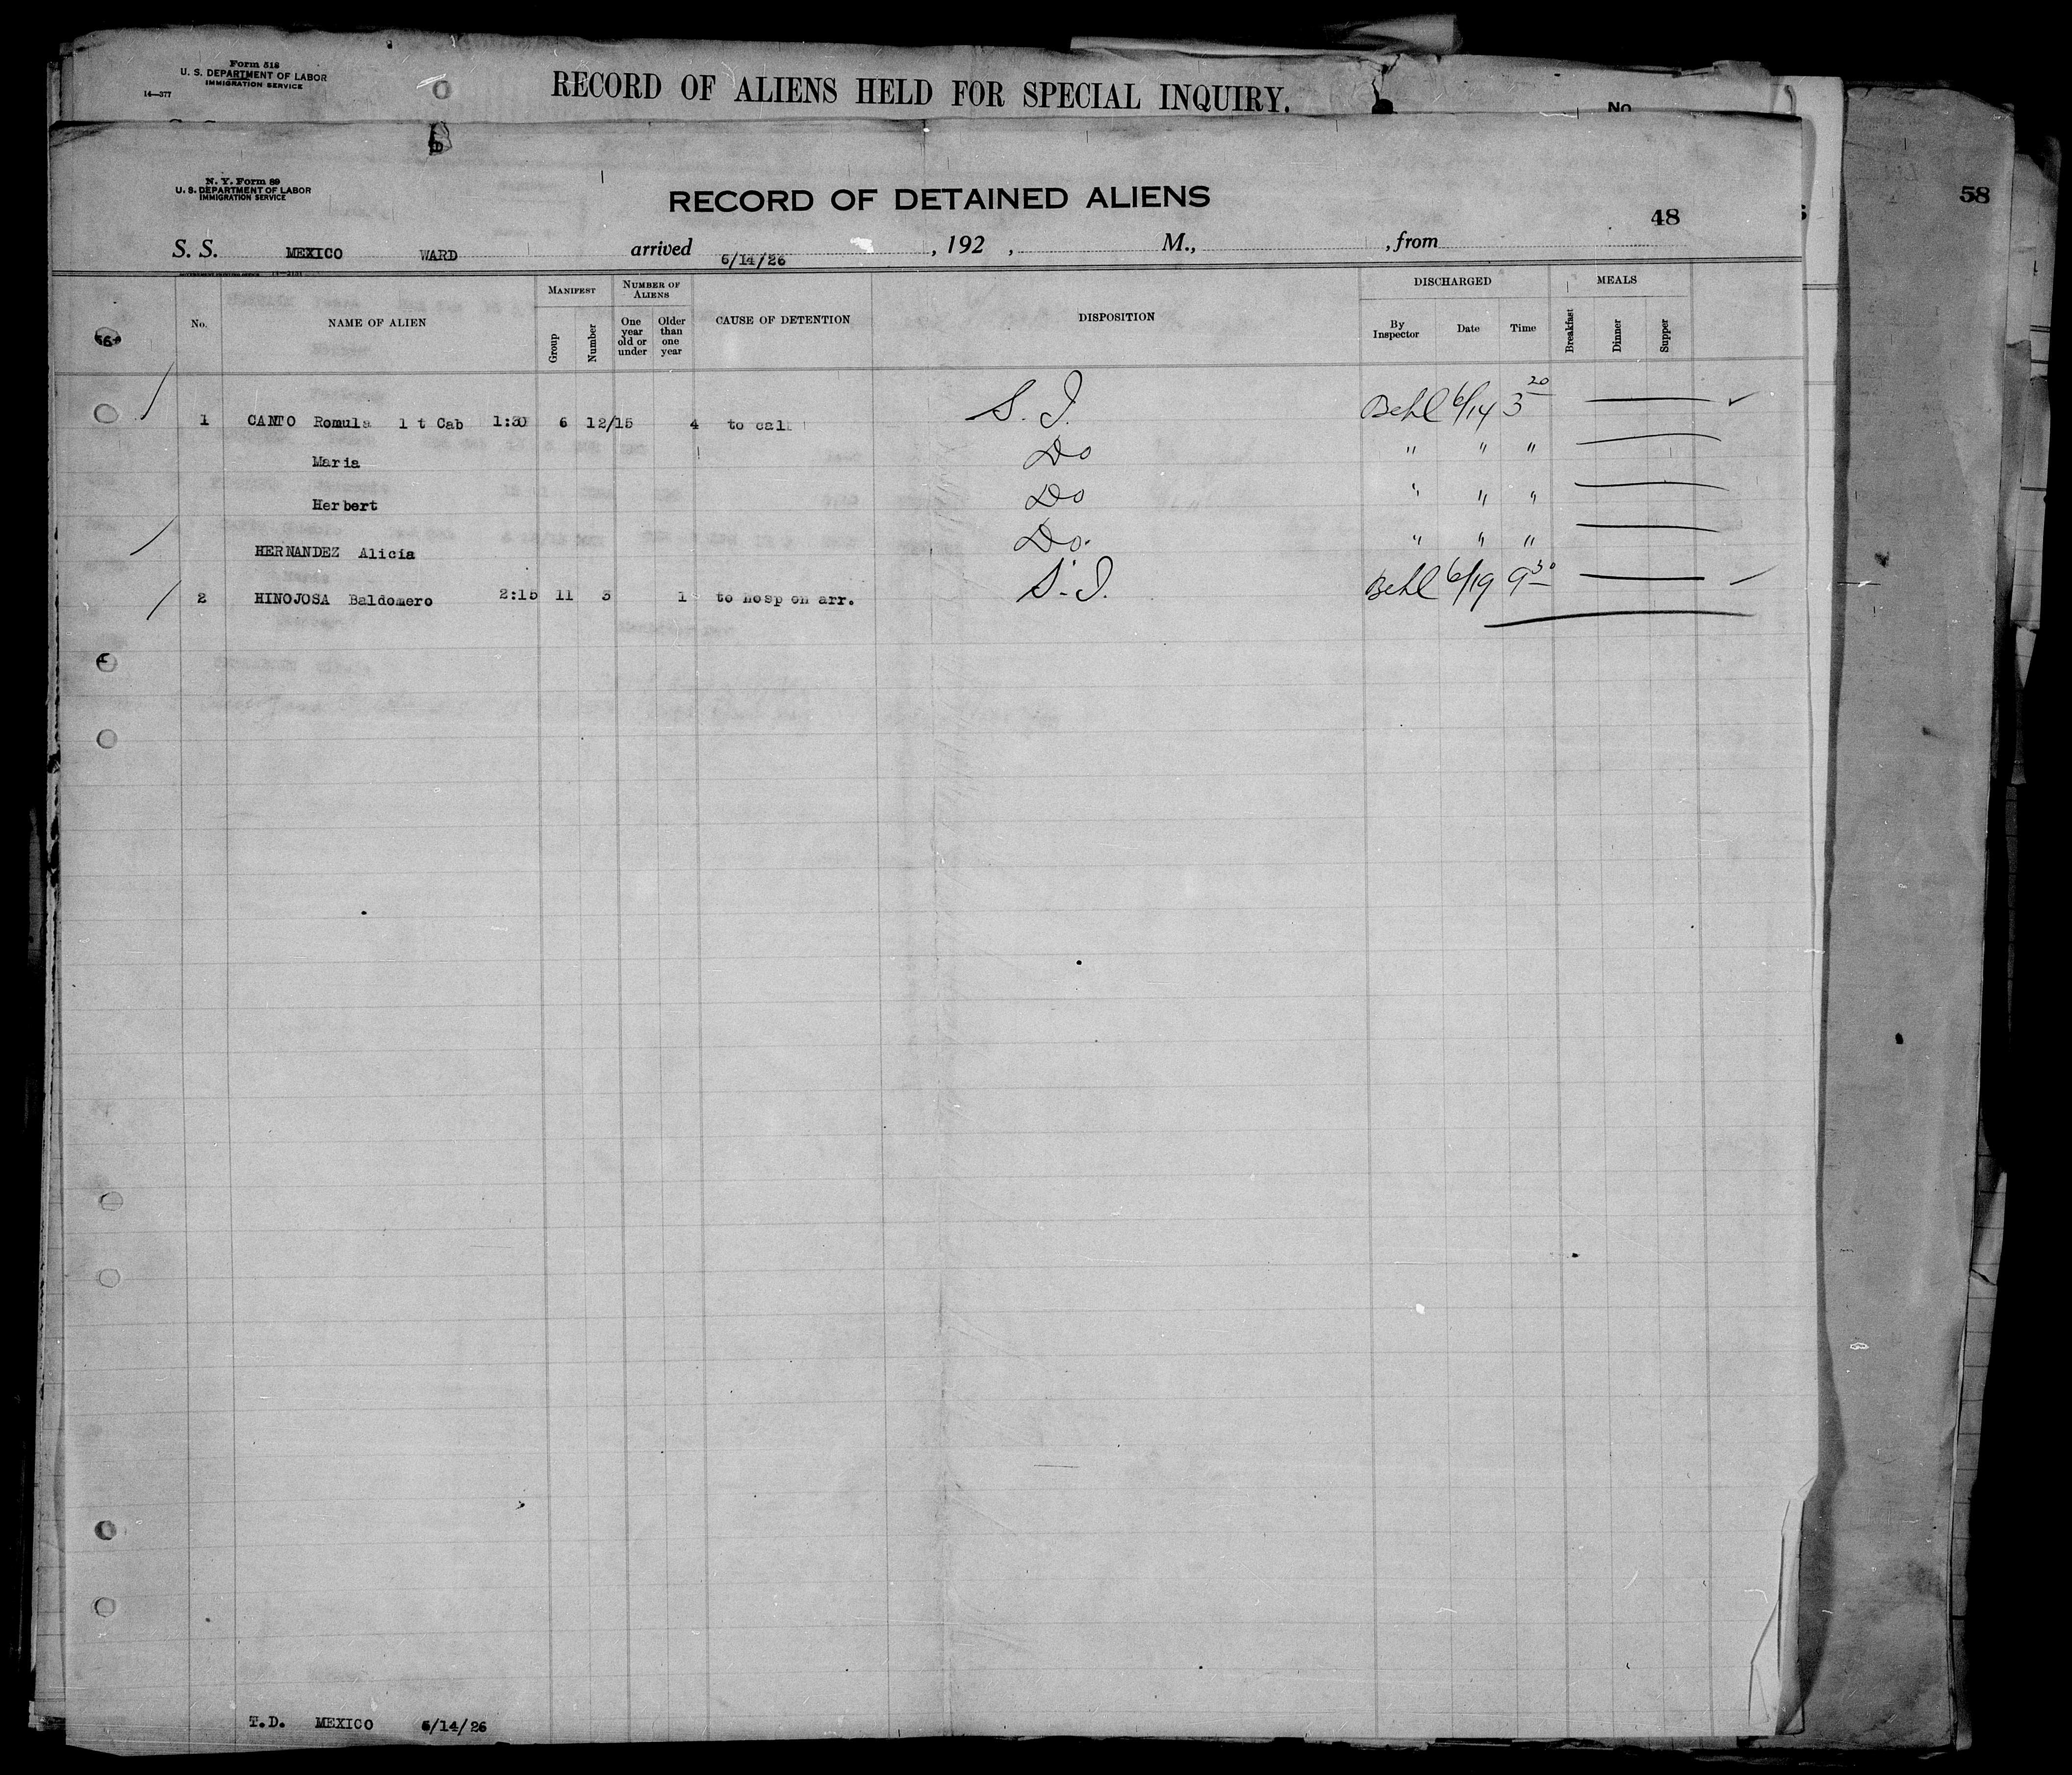 Form 518
U. S. DEPARTMENT OF LABOR
IMMIGRATION SERVICE
14—377
RECORD OF ALIENS HELD FOR SPECIAL INQUIRY.
No.
58
N. Y. Form 89
U. S. DEPARTMENT OF LABOR
IMMIGRATION SERVICE
RECORD OF DETAINED ALIENS
48
S. S. MEXICO WARD arrived 6/14/26, 192 , M., , from
No. NAME OF ALIEN MANIFEST Group Number NUMBER OF ALIENS One year old or under Older than one year CAUSE OF DETENTION DISPOSITION DISCHARGED By Inspector Date Time MEALS Breakfast Dinner Supper
1 CANTO Romula 1 t Cab 1:30 6 12/15 4 to call S. I. Behl 6/14 3 20
Maria Do " " "
Herbert Do " " "
HERNANDEZ Alicia Do. " " "
2 HINOJOSA Baldomero 2:15 11 3 1 to hosp on arr. S. I. Behl 6/19 9 30
T.D. MEXICO 6/14/26